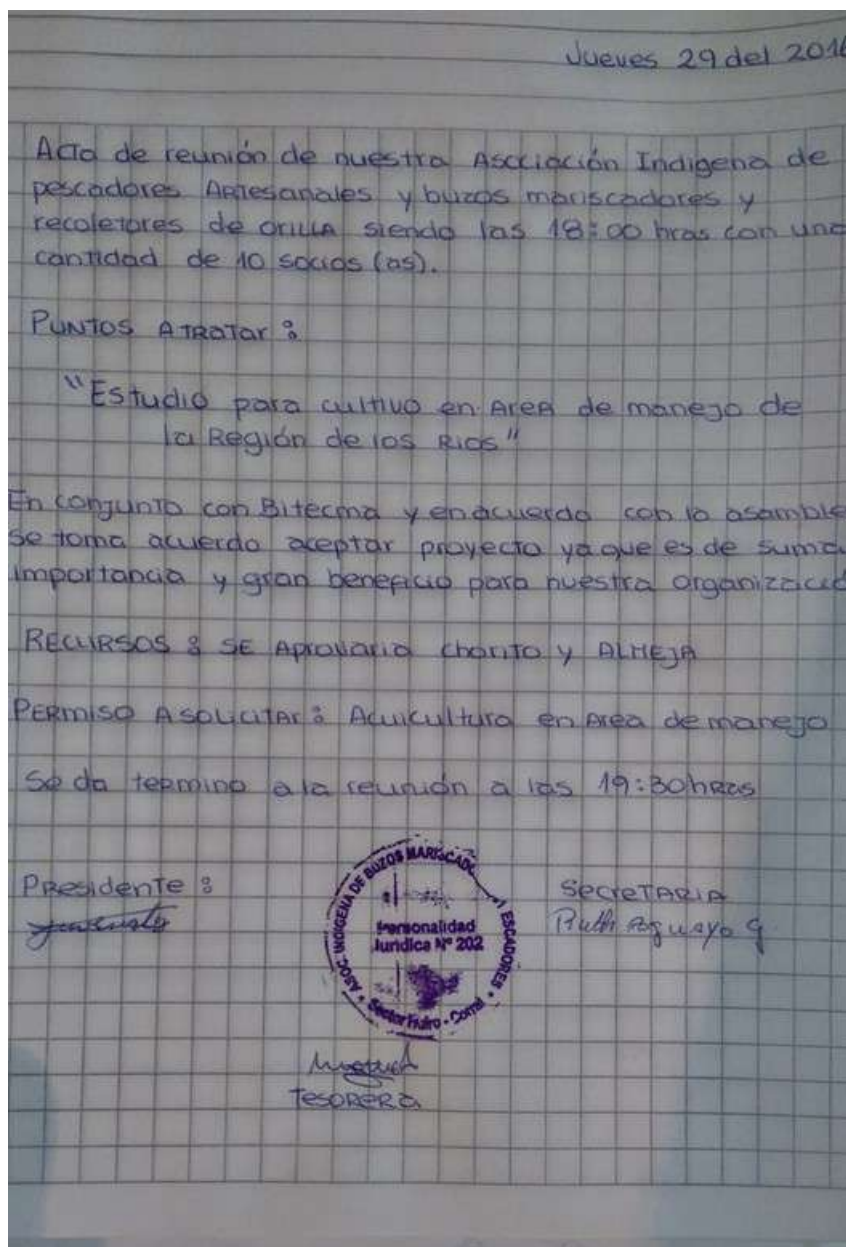 Jueves 29 del 2016
Acta de reunión de nuestra Asociación Indigena de
pescadores Artesanales y buzos mariscadores y
recoletores de orilla siendo las 18:00 hras con una
cantidad de 10 socios (as).
PUNTOS A TRATAR:
"Estudio para cultivo en Area de manejo de
la Región de los Rios"
En conjunto con Bitecma y en acuerdo con la asamble
se toma acuerdo aceptar proyecto ya que es de suma
importancia y gran beneficio para nuestra organizació
RECURSOS: SE Aprovaria chorito y ALMEJA
PERMISO A SOLICITAR: Acuicultura en Area de manejo
Se da termino a la reunión a las 19:30 hras
Presidente:
ASOC. INDIGENA DE BUZOS MARISCADO
ESCADORES
Personalidad
Jurídica Nº 202
Sector Huiro - Corral
Secretaria
Ruth Aguayo G.
Tesorera